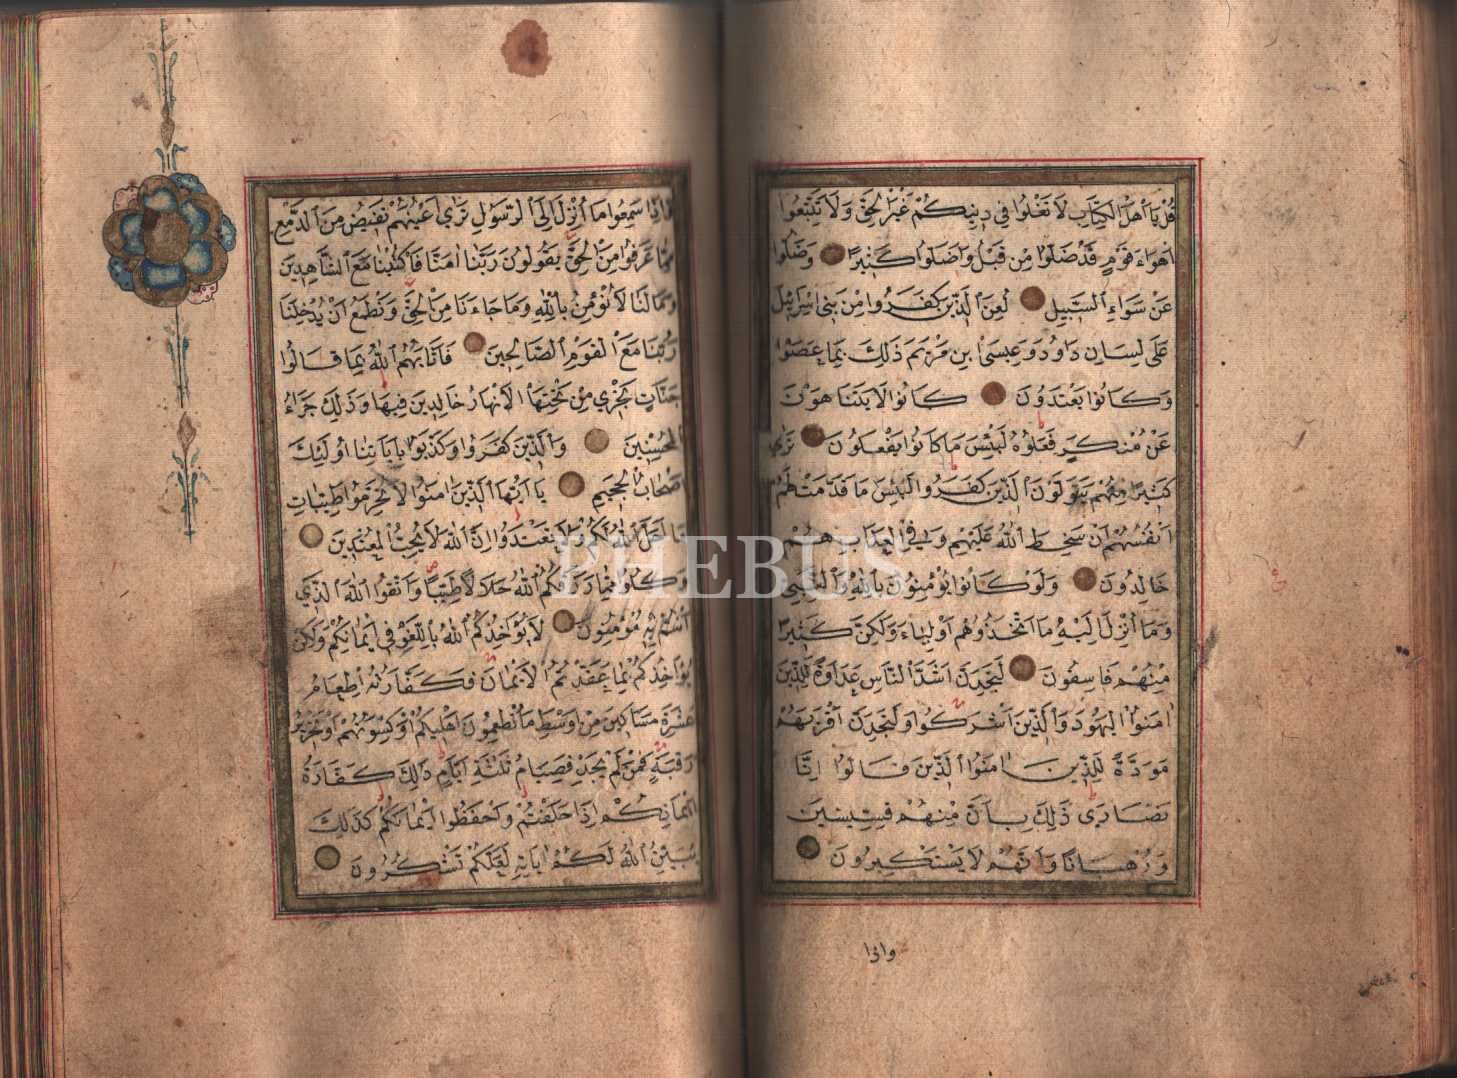 قُلْ يَا أَهْلَ الْكِتَابِ لَا تَغْلُوا فِي دِينِكُمْ غَيْرَ الْحَقِّ وَلَا تَتَّبِعُوا
أَهْوَاءَ قَوْمٍ قَدْ ضَلُّوا مِن قَبْلُ وَأَضَلُّوا كَثِيرًا وَضَلُّوا
عَنْ سَوَاءِ السَّبِيلِ لُعِنَ الَّذِينَ كَفَرُوا مِنْ بَنِي إِسْرَائِيلَ
عَلَى لِسَانِ دَاوُدَ وَعِيسَى بْنِ مَرْيَمَ ذَلِكَ بِمَا عَصَوْا
وَكَانُوا يَعْتَدُونَ كَانُوا لَا يَتَنَاهَوْنَ
عَنْ مُنْكَرٍ فَعَلُوهُ لَبِئْسَ مَا كَانُوا يَفْعَلُونَ تَرَى
كَثِيرًا مِنْهُمْ يَتَوَلَّوْنَ الَّذِينَ كَفَرُوا لَبِئْسَ مَا قَدَّمَتْ لَهُمْ
أَنْفُسُهُمْ أَنْ سَخِطَ اللَّهُ عَلَيْهِمْ وَفِي الْعَذَابِ هُمْ
خَالِدُونَ وَلَوْ كَانُوا يُؤْمِنُونَ بِاللَّهِ وَالنَّبِيِّ
وَمَا أُنْزِلَ إِلَيْهِ مَا اتَّخَذُوهُمْ أَوْلِيَاءَ وَلَكِنَّ كَثِيرًا
مِنْهُمْ فَاسِقُونَ لَتَجِدَنَّ أَشَدَّ النَّاسِ عَدَاوَةً لِلَّذِينَ
آمَنُوا الْيَهُودَ وَالَّذِينَ أَشْرَكُوا وَلَتَجِدَنَّ أَقْرَبَهُمْ
مَوَدَّةً لِلَّذِينَ آمَنُوا الَّذِينَ قَالُوا إِنَّا
نَصَارَى ذَلِكَ بِأَنَّ مِنْهُمْ قِسِّيسِينَ
وَرُهْبَانًا وَأَنَّهُمْ لَا يَسْتَكْبِرُونَ
واذا
وَإِذَا سَمِعُوا مَا أُنْزِلَ إِلَى الرَّسُولِ تَرَى أَعْيُنَهُمْ تَفِيضُ مِنَ الدَّمْعِ
مِمَّا عَرَفُوا مِنَ الْحَقِّ يَقُولُونَ رَبَّنَا آمَنَّا فَاكْتُبْنَا مَعَ الشَّاهِدِينَ
وَمَا لَنَا لَا نُؤْمِنُ بِاللَّهِ وَمَا جَاءَنَا مِنَ الْحَقِّ وَنَطْمَعُ أَنْ يُدْخِلَنَا
رَبُّنَا مَعَ الْقَوْمِ الصَّالِحِينَ فَأَثَابَهُمُ اللَّهُ بِمَا قَالُوا
جَنَّاتٍ تَجْرِي مِنْ تَحْتِهَا الْأَنْهَارُ خَالِدِينَ فِيهَا وَذَلِكَ جَزَاءُ
الْمُحْسِنِينَ وَالَّذِينَ كَفَرُوا وَكَذَّبُوا بِآيَاتِنَا أُولَئِكَ
أَصْحَابُ الْجَحِيمِ يَا أَيُّهَا الَّذِينَ آمَنُوا لَا تُحَرِّمُوا طَيِّبَاتِ
مَا أَحَلَّ اللَّهُ لَكُمْ وَلَا تَعْتَدُوا إِنَّ اللَّهَ لَا يُحِبُّ الْمُعْتَدِينَ
وَكُلُوا مِمَّا رَزَقَكُمُ اللَّهُ حَلَالًا طَيِّبًا وَاتَّقُوا اللَّهَ الَّذِي
أَنْتُمْ بِهِ مُؤْمِنُونَ لَا يُؤَاخِذُكُمُ اللَّهُ بِاللَّغْوِ فِي أَيْمَانِكُمْ وَلَكِنْ
يُؤَاخِذُكُمْ بِمَا عَقَّدْتُمُ الْأَيْمَانَ فَكَفَّارَتُهُ إِطْعَامُ
عَشَرَةِ مَسَاكِينَ مِنْ أَوْسَطِ مَا تُطْعِمُونَ أَهْلِيكُمْ أَوْ كِسْوَتُهُمْ أَوْ تَحْرِيرُ
رَقَبَةٍ فَمَنْ لَمْ يَجِدْ فَصِيَامُ ثَلَثَةِ أَيَّامٍ ذَلِكَ كَفَّارَةُ
أَيْمَانِكُمْ إِذَا حَلَفْتُمْ وَاحْفَظُوا أَيْمَانَكُمْ كَذَلِكَ
يُبَيِّنُ اللَّهُ لَكُمْ آيَاتِهِ لَعَلَّكُمْ تَشْكُرُونَ
PHEBUS